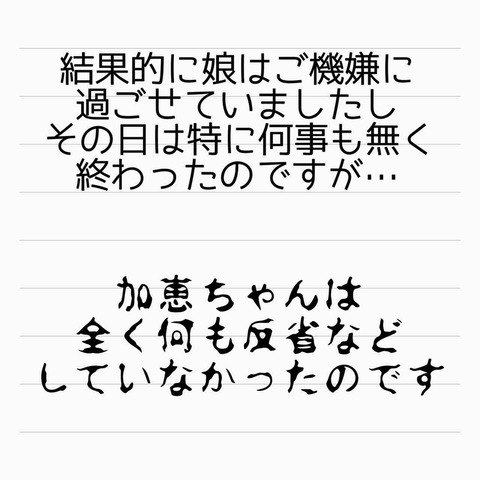 結果的に娘はご機嫌に
過ごせていましたし
その日は特に何事も無く
終わったのですが…
加恵ちゃんは
全く何も反省など
していなかったのです